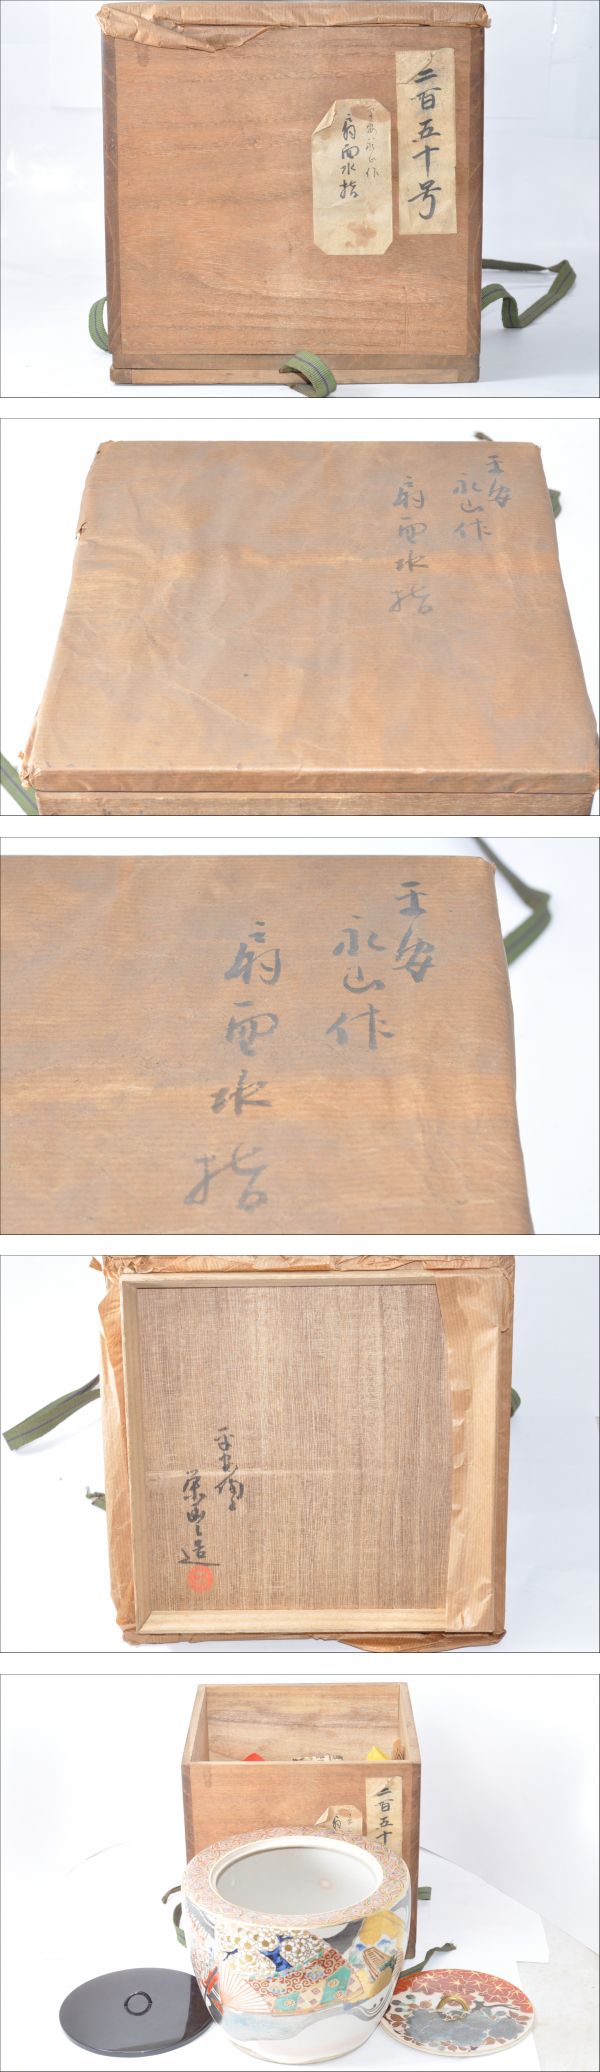 二百五十号
平安永山作
扇面水指
平安
永山作
扇面水指
平安
永山作
扇面水指
平安陶工
栄山之造
二百五十